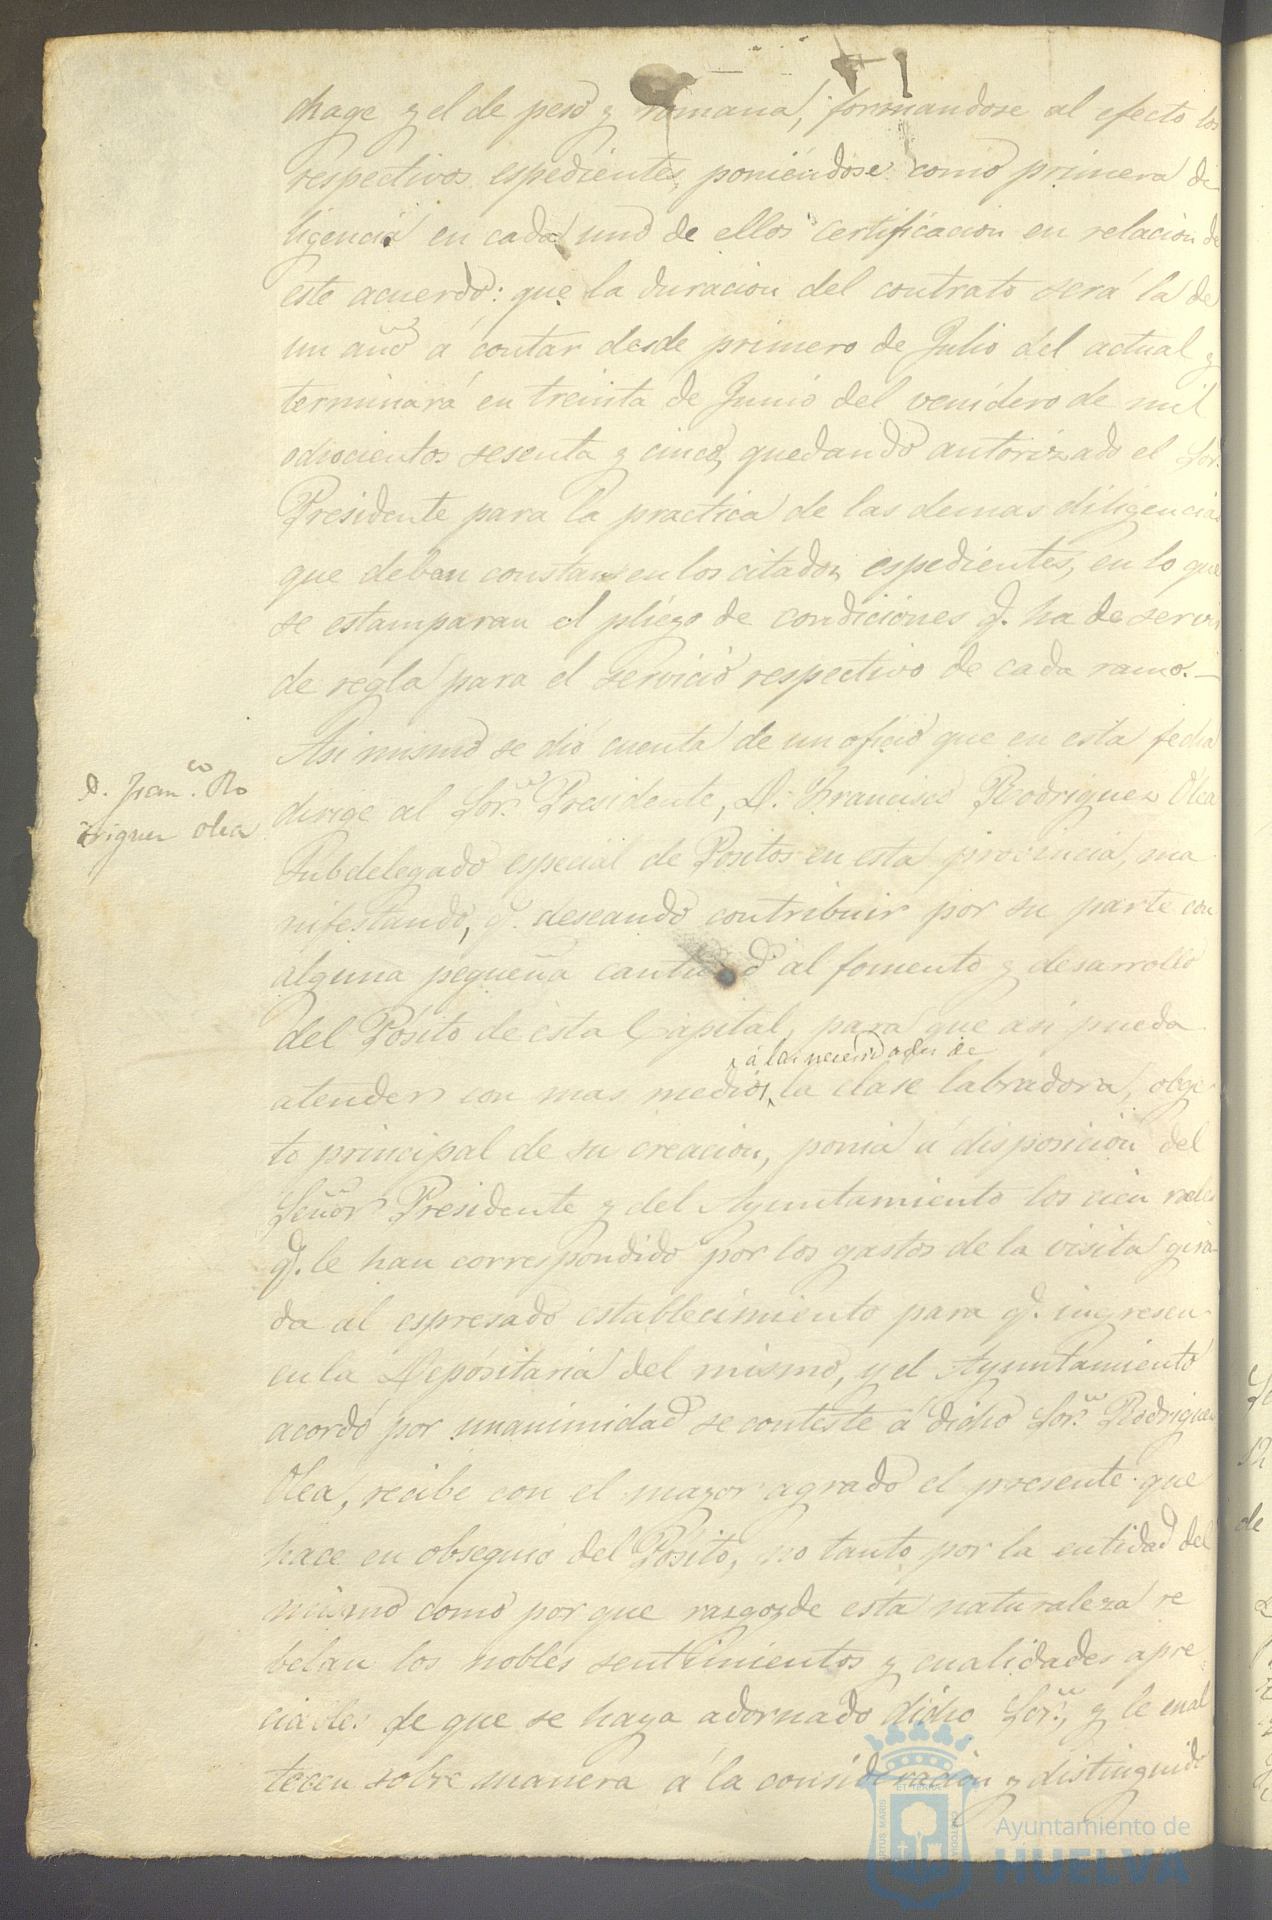 chage y el de peso y romana, formandose al efecto los
respectivos espedientes, poniéndose como primera di
ligencia en cada uno de ellos certificacion en relacion de
este acuerdo: que la duracion del contrato será la de
un año á contar desde primero de Julio del actual y
terminará en treinta de Junio del venidero de mil
ochocientos sesenta y cinco, quedando autorizado el Sor.
Presidente para la practica de las demas diligencias
que deban constar en los citados espedientes, en lo que
se estamparan el pliego de condiciones q. ha de servir
de regla para el servicio respectivo de cada ramo.—
Asi mismo se dió cuenta de un oficio que en esta fecha
D. Franco. Ro
driguez Olea
dirige al Sor. Presidente, D. Francisco Rodriguez Olea
Subdelegado especial de Positos en esta provincia, ma
nifestando, q. deseando contribuir por su parte con
alguna pequeña cantidad al fomento y desarrollo
del Pósito de esta Capital, para que asi pueda
á las necesidades de
atender con mas medios la clase labradora, obge
to principal de su creacion, ponia á disposicion del
Señor Presidente y del Ayuntamiento los cien reales
q. le han correspondido por los gastos de la visita gira
da al espresado establecimiento para q. ingresen
en la Depositaria del mismo, y el Ayuntamiento
acordó por unanimidad se conteste á dicho Sor. Rodriguez
Olea, recibe con el mayor agrado el presente que
hace en obsequio del Pósito, no tanto por la entidad del
mismo como por que rasgos de esta naturaleza re
belan los nobles sentimientos y cualidades apre
ciables de que se haya adornado dicho Sor., y le enal
tecen sobre manera á la consideracion y distinguida
Ayuntamiento de
HUELVA